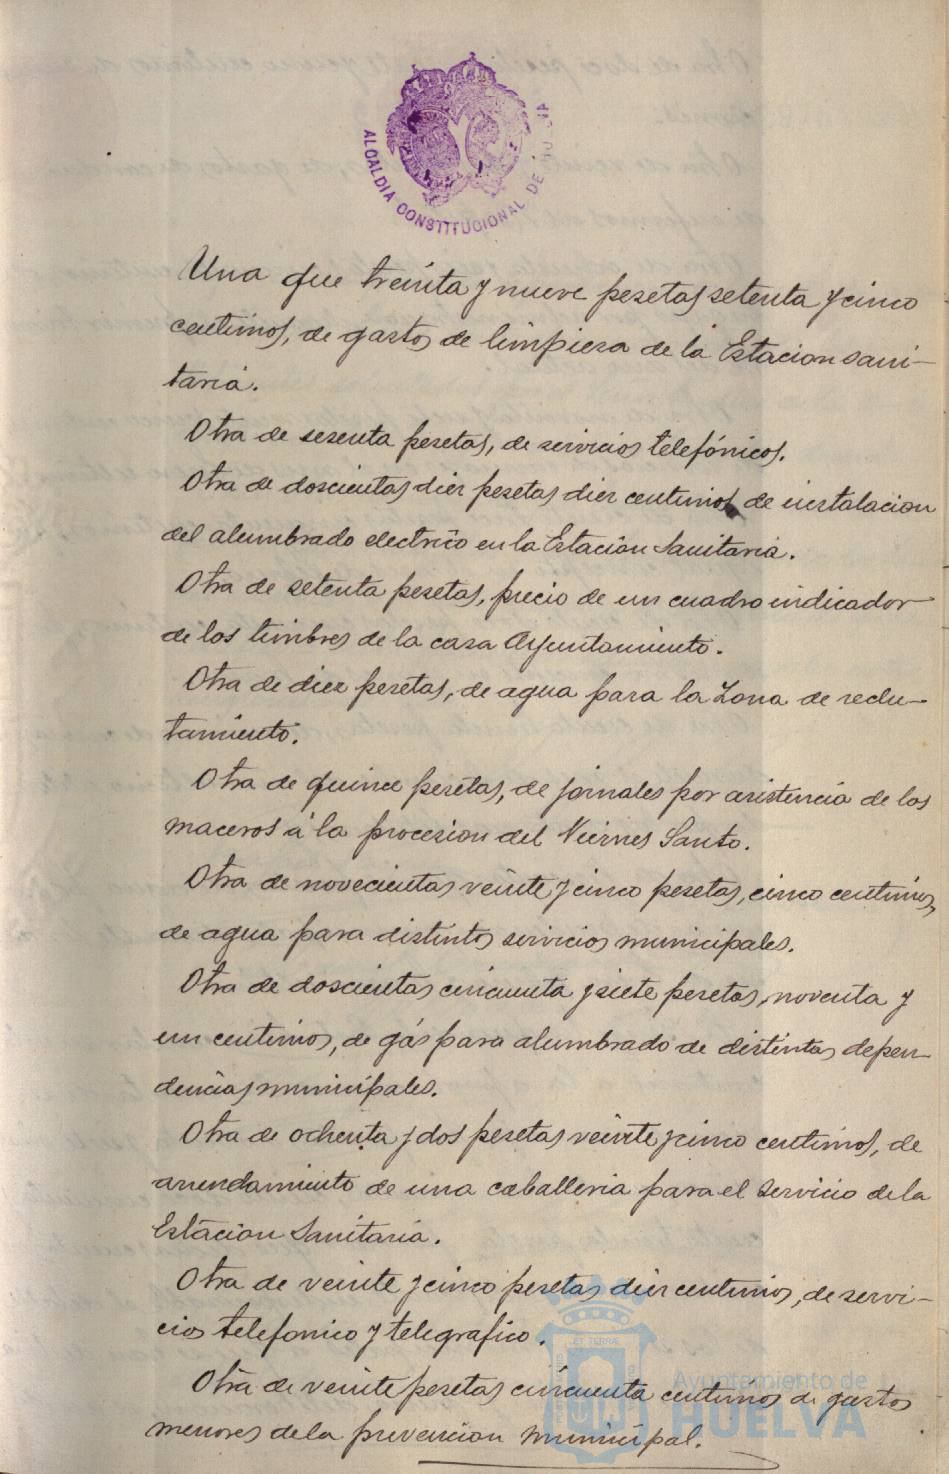 ALCALDIA CONSTITUCIONAL DE HUELVA
Una que treinta y nueve pesetas setenta y cinco
centimos, de gastos de limpieza de la Estacion sani-
taria.
Otra de sesenta pesetas, de servicios telefónicos.
Otra de doscientas diez pesetas diez centimos de instalacion
del alumbrado electrico en la Estación Sanitaria.
Otra de setenta pesetas, precio de un cuadro indicador
de los timbres de la casa Ayuntamiento.
Otra de diez pesetas, de agua para la Zona de reclu-
tamiento.
Otra de quince pesetas, de jornales por asistencia de los
maceros á la procesion del Viernes Santo.
Otra de novecientas veinte y cinco pesetas, cinco centimos,
de agua para distintos servicios municipales.
Otra de doscientas cincuenta y siete pesetas, noventa y
un centimos, de gás para alumbrado de distintas depen-
dencias municipales.
Otra de ochenta y dos pesetas veinte y cinco centimos, de
arrendamiento de una caballeria para el servicio de la
Estacion Sanitaria.
Otra de veinte y cinco pesetas diez centimos, de servi-
cios telefonico y telegrafico.
Otra de veinte pesetas cincuenta centimos de gastos
menores de la prevencion municipal.
Ayuntamiento de
HUELVA